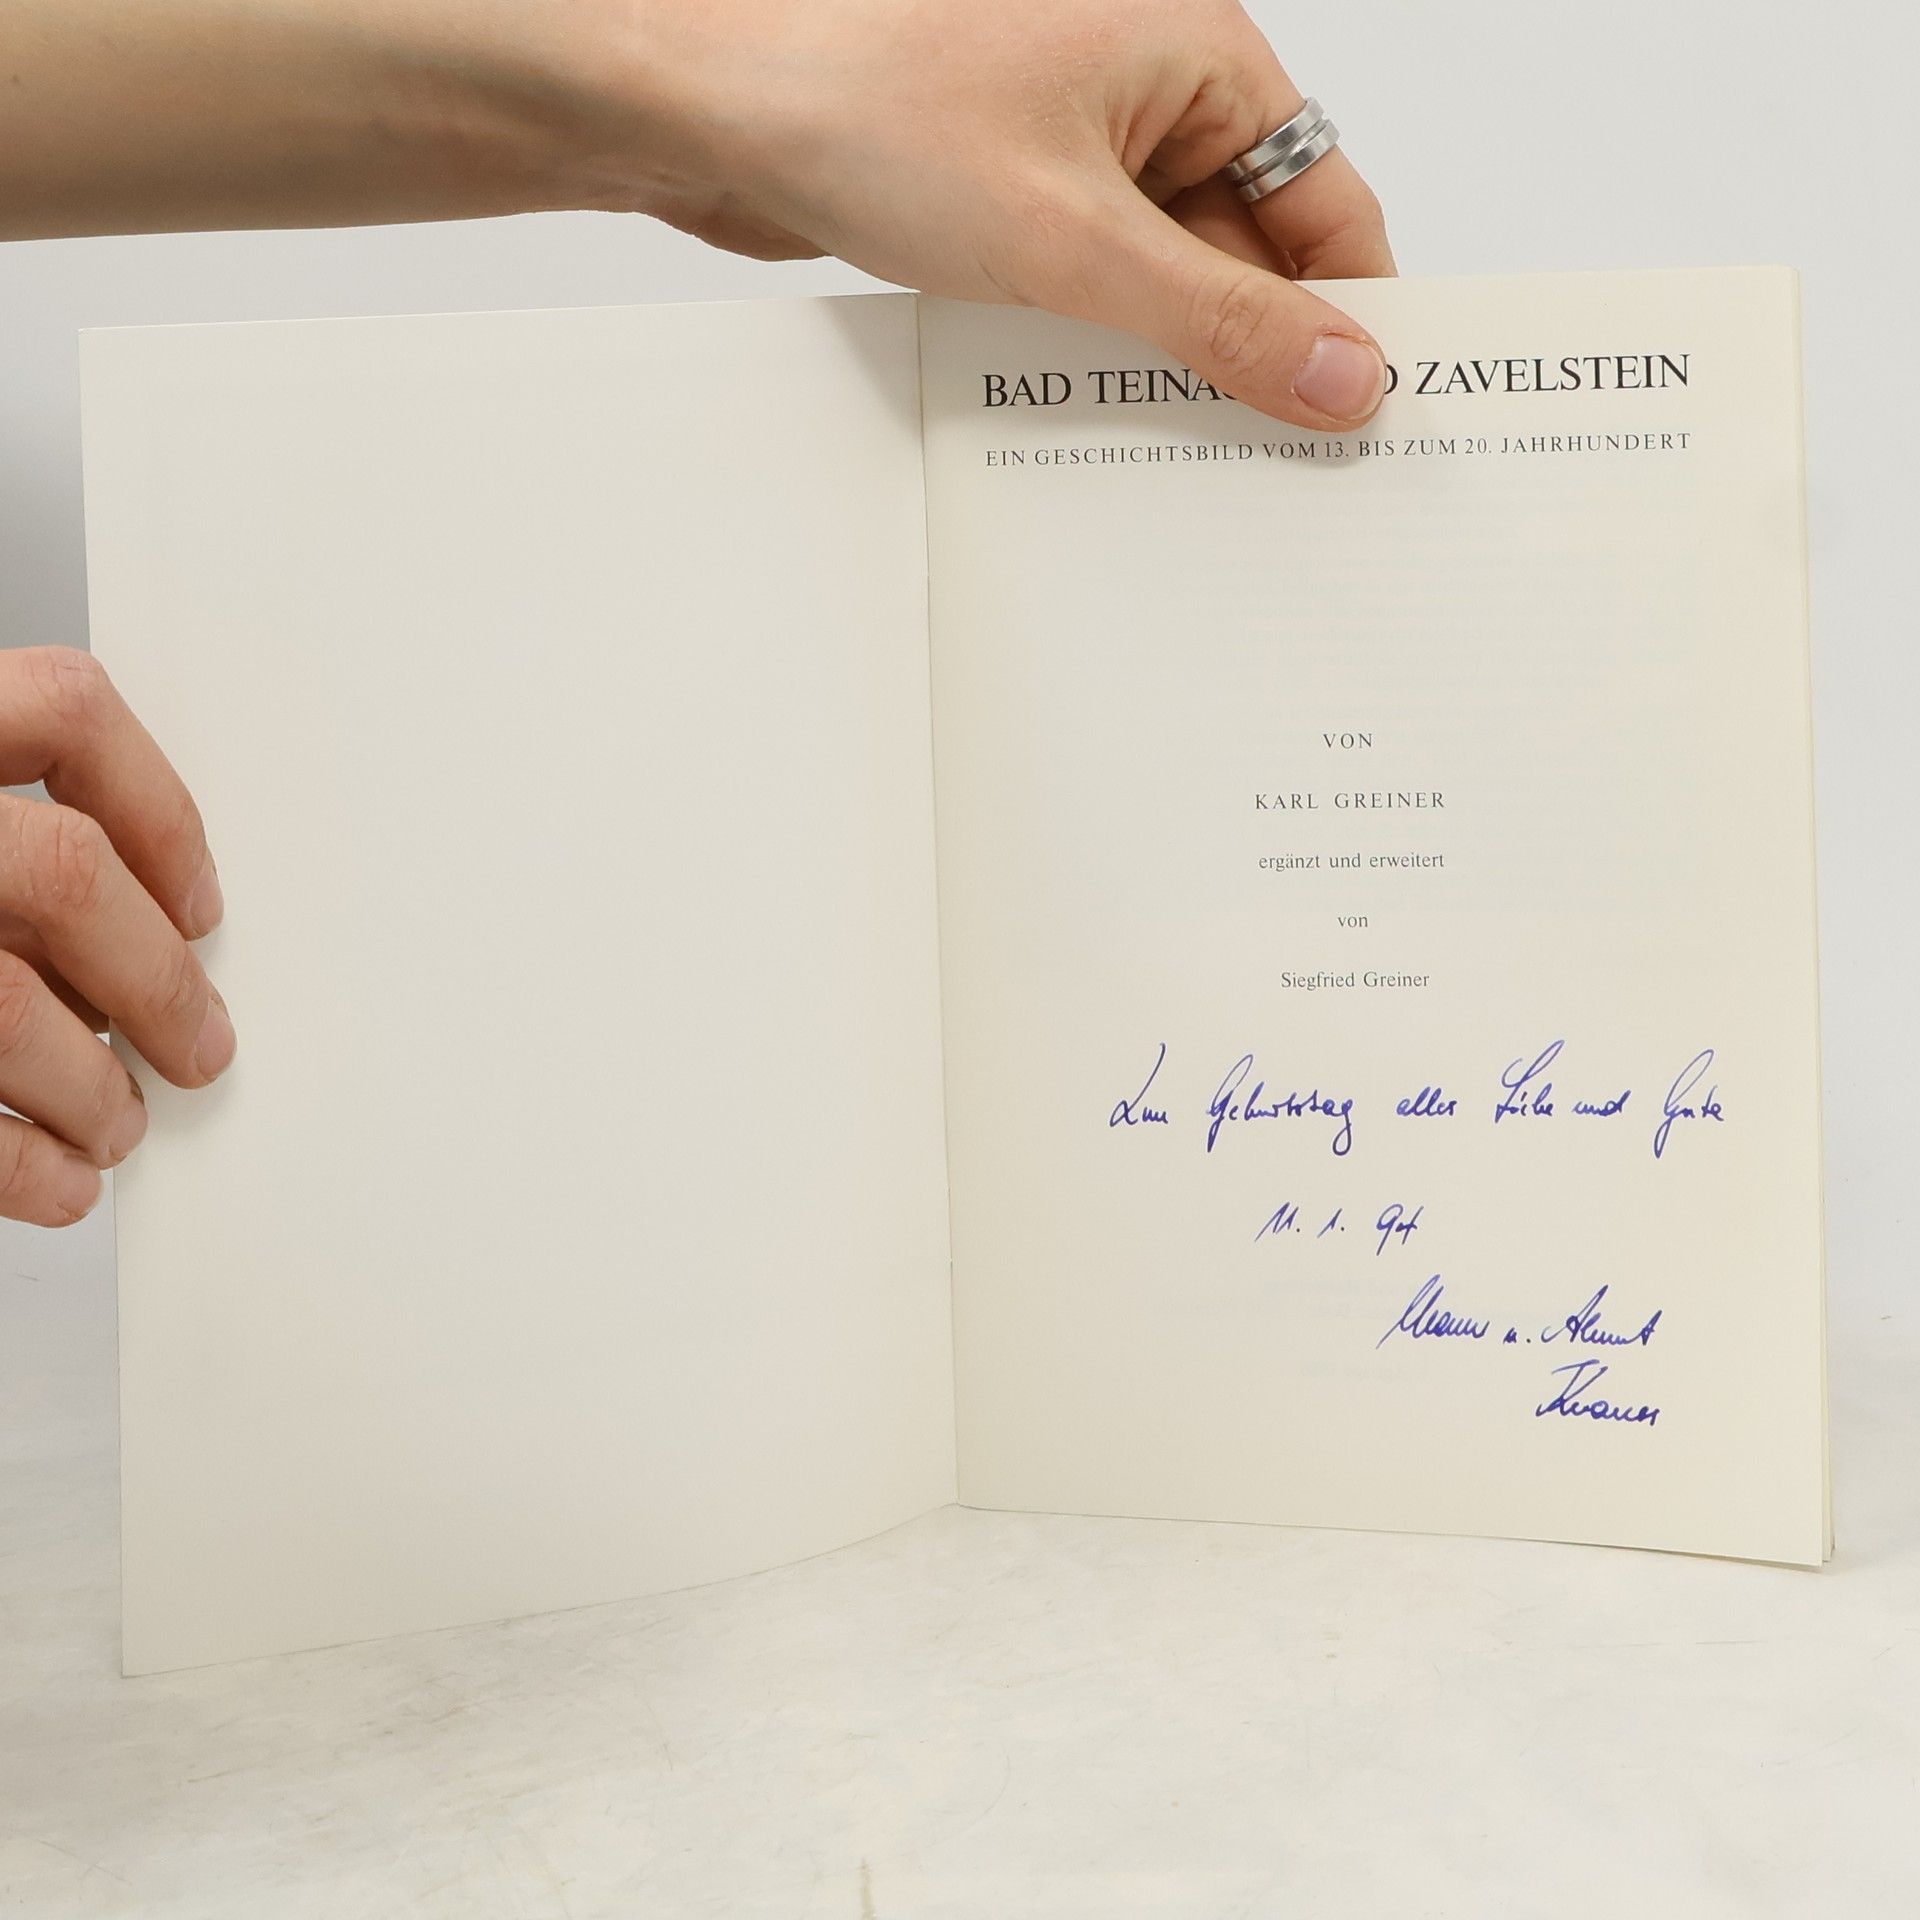 BAD TEINA ZAVELSTEIN
EIN GESCHICHTSBILD VOM 13. BIS ZUM 20. JAHRHUNDERT
VON
KARL GREINER
ergänzt und erweitert
von
Siegfried Greiner
Zum Geburtstag alles Liebe und Gute
11. 1. 94
u. Almut